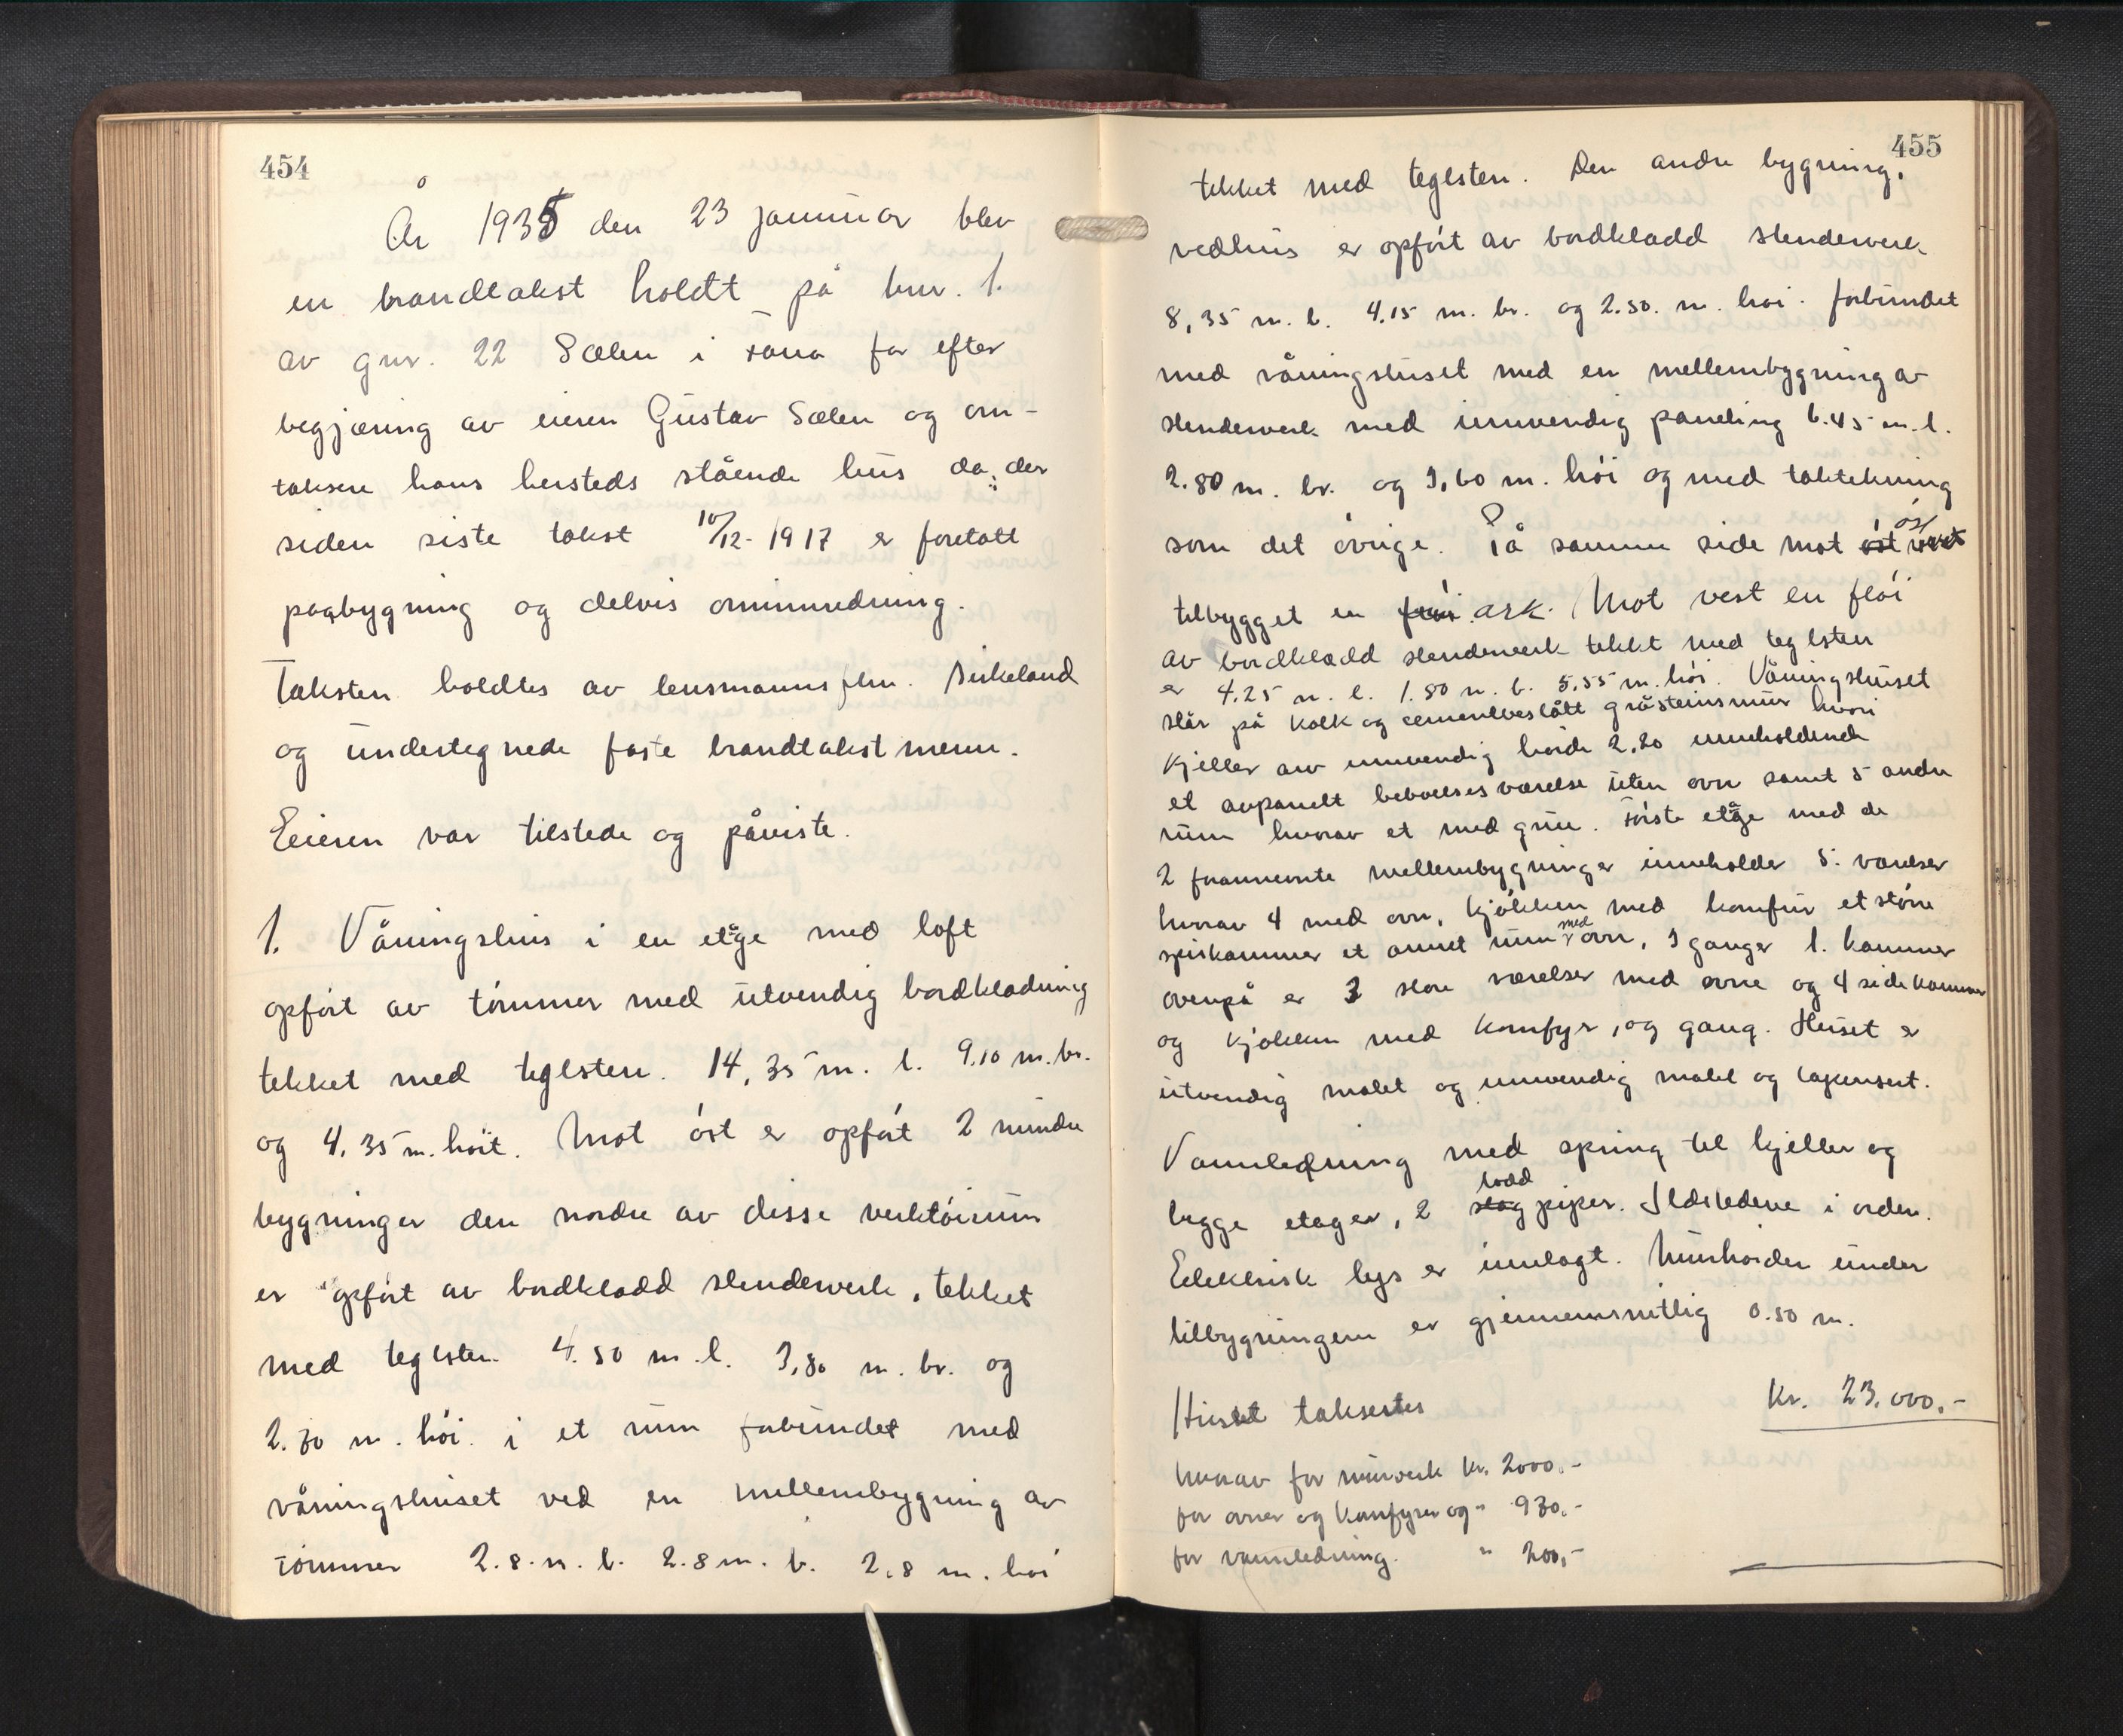 454
År 1935 den 23 januar blev
en brandtakst holdt på bnr. 1.
av gnr. 22 Sælen i Fana for efter
begjæring av eieren Gustav Sælen og om-
taksere hans hersteds stående hus da der
siden siste takst 10/12-1917 er foretatt
påbygning og delvis ominnredning.
Taksten holdtes av lensmannsfhm. Birkeland
og undertegnede faste brandtakstmenn.
Eieren var tilstede og påviste.
1. Våningshus i en etage med loft
opført av tømmer med utvendig bordklædning
tekket med teglsten. 14,35 m. l. 9.10 m. br.
og 4,35 m. høit. Mot øst er opført 2 mindre
bygninger den nordre av disse verktøirum
er opført av bordklædd stenderverk, tekket
med teglsten 4.50 m. l. 3,80 m. br. og
2.70 m. høi. i et rum forbundet med
våningshuset ved en mellembygning av
tømmer 2.8. m. l. 2.8 m. b. 2,8 m. høi
455
tekket med teglsten. Den andre bygning,
vedhus er opført av bordklædd stenderverk
8,35 m. l. 4.15 m. br. og 2.50. m. høi. forbundet
med våningshuset med en mellembygning av
stenderverk med innvendig paneling 6.45 m. l.
2.80 m. br. og 3,60 m. høi og med taktekning
som det øvrige. På samme side mot øst
tilbygget en ark. Mot vest en fløi
av bordklædd stenderverk tekket med teglsten
er 4.25 m. l. 1.80 m. b. 5,55 m. høi. Våningshuset
står på kalk og cementbeslått gråsteinsmur hvori
kjeller av innvendig høide 2,20 inneholdende
et avpanelt beboelsesværelse uten ovn samt 5 andre
rum hvorav et med grue. Første etage med de
2 forannevnte mellembygninger inneholder 5. værelser
hvorav 4 med ovn, kjøkken med komfur et større
spiskammer et annet rum med ovn, 3 ganger 1. kammer
ovenpå er 3 store værelser med ovne og 4 sidekammer
og kjøkken med komfyr, og gang. Huset er
utvendig malet og innvendig malt og tapetsert.
Vannledning med spring til kjeller og
begge etager, 2 piper. Ildstedene i orden.
Elektrisk lys er innlagt. Murhøiden under
tilbygningene er gjennemsnitlig 0.50 m.
Huset takseres Kr. 23.000.-
hvorav for murverk kr. 2000.-
for ovner og komfyrer og " 930.-
for vannledning. " 200,-